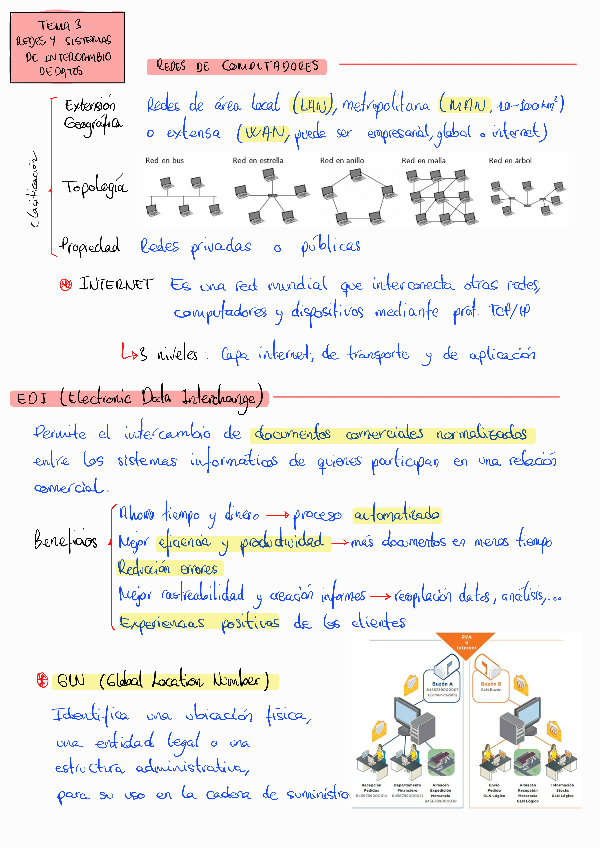 TEMA 3
REDES Y SISTEMAS
DE INTERCAMBIO
DE DATOS
REDES DE COMPUTADORES
Clasificación
Extensión
Geográfica
Redes de área local (LAN), metropolitana (MAN, 10-100km²)
o extensa (WAN, puede ser empresarial, global o internet)
Topología
Red en bus Red en estrella Red en anillo Red en malla Red en árbol
Propiedad Redes privadas o públicas
INTERNET Es una red mundial que interconecta otras redes,
computadores y dispositivos mediante prot. TCP/IP
↳ 3 niveles: Capa internet, de transporte y de aplicación
EDI (Electronic Data Interchange)
Permite el intercambio de documentos comerciales normalizados
entre los sistemas informáticos de quienes participan en una relación
comercial.
Beneficios
Ahorro tiempo y dinero → proceso automatizado
Mejor eficiencia y productividad → más documentos en menos tiempo
Reducción errores
Mejor rastreabilidad y creación informes → recopilación datos, análisis,...
Experiencias positivas de los clientes
GLN (Global Location Number)
Identifica una ubicación física,
una entidad legal o una
estructura administrativa,
para su uso en la cadena de suministro
RVA
o
Internet
Buzón A
(Comunicación)
Buzón B
GLN Buzón
Recepción
Pedidos
Departamento
Financiero
Almacén
Expedición
Mercancía
Envío
Pedido
GLN Lógico
Almacén
Recepción
Mercancía
GLN Lógico
Información
Stocks
GLN Lógico